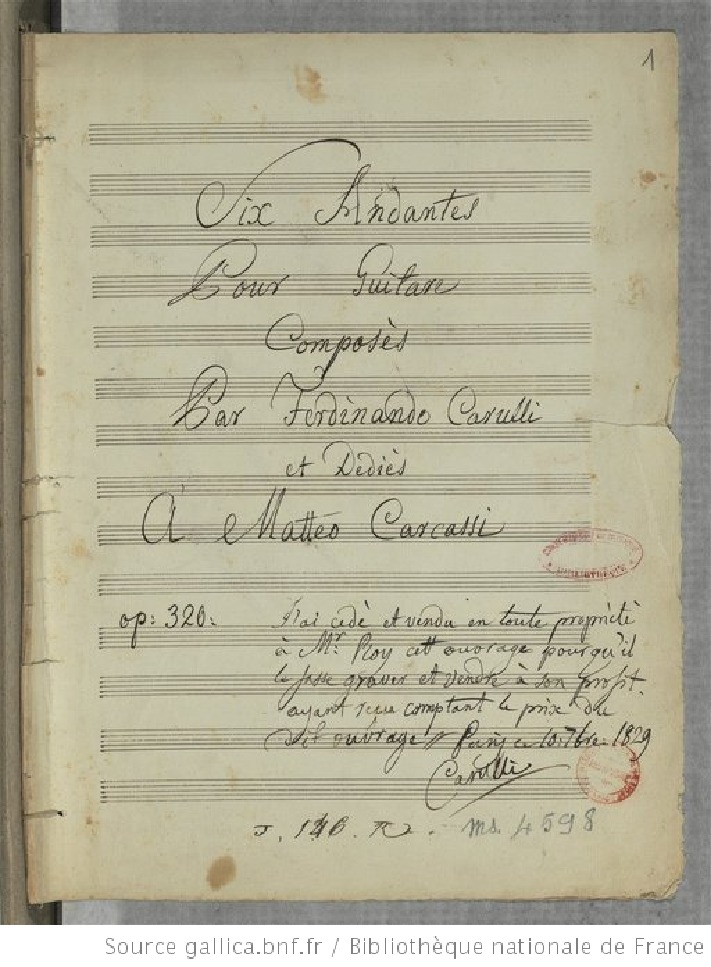 1
Six Andantes
Pour Guitare
Composès
Par Ferdinando Carulli
et Dediès
A Matteo Carcassi
op: 320:
J'ai cedè et vendu en toute propriété
à Mr. Roy cet ouvrage pour qu'il
le fasse graver et vendre à son profit.
ayant reçu comptant le prix du
dit ouvrage Paris ce 10 7bre 1829
Carulli
J. 146. R
ms. 4598
Source gallica.bnf.fr / Bibliothèque nationale de France